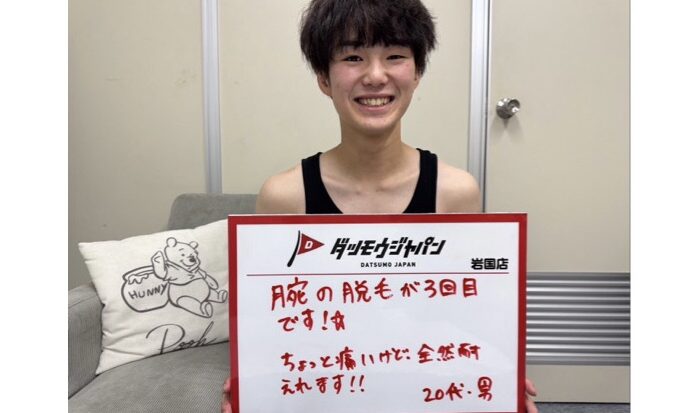 D
ダツモウジャパン
DATSUMO JAPAN
岩国店
腕の脱毛が3回目
です!☆
ちょっと痛いけど、全然耐
えれます!!
20代・男
HUNNY
Pooh